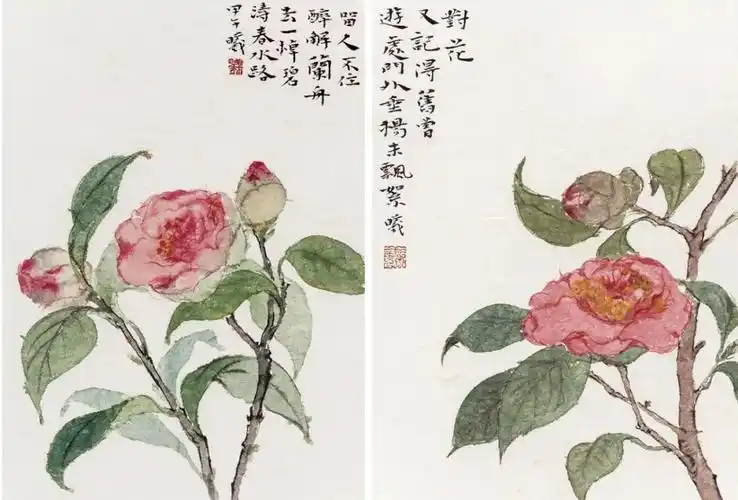 留人不住
醉解蘭舟
去一棹碧
濤春水路
甲午曦
對花
又記得舊嘗
遊處門外垂楊未飄絮曦